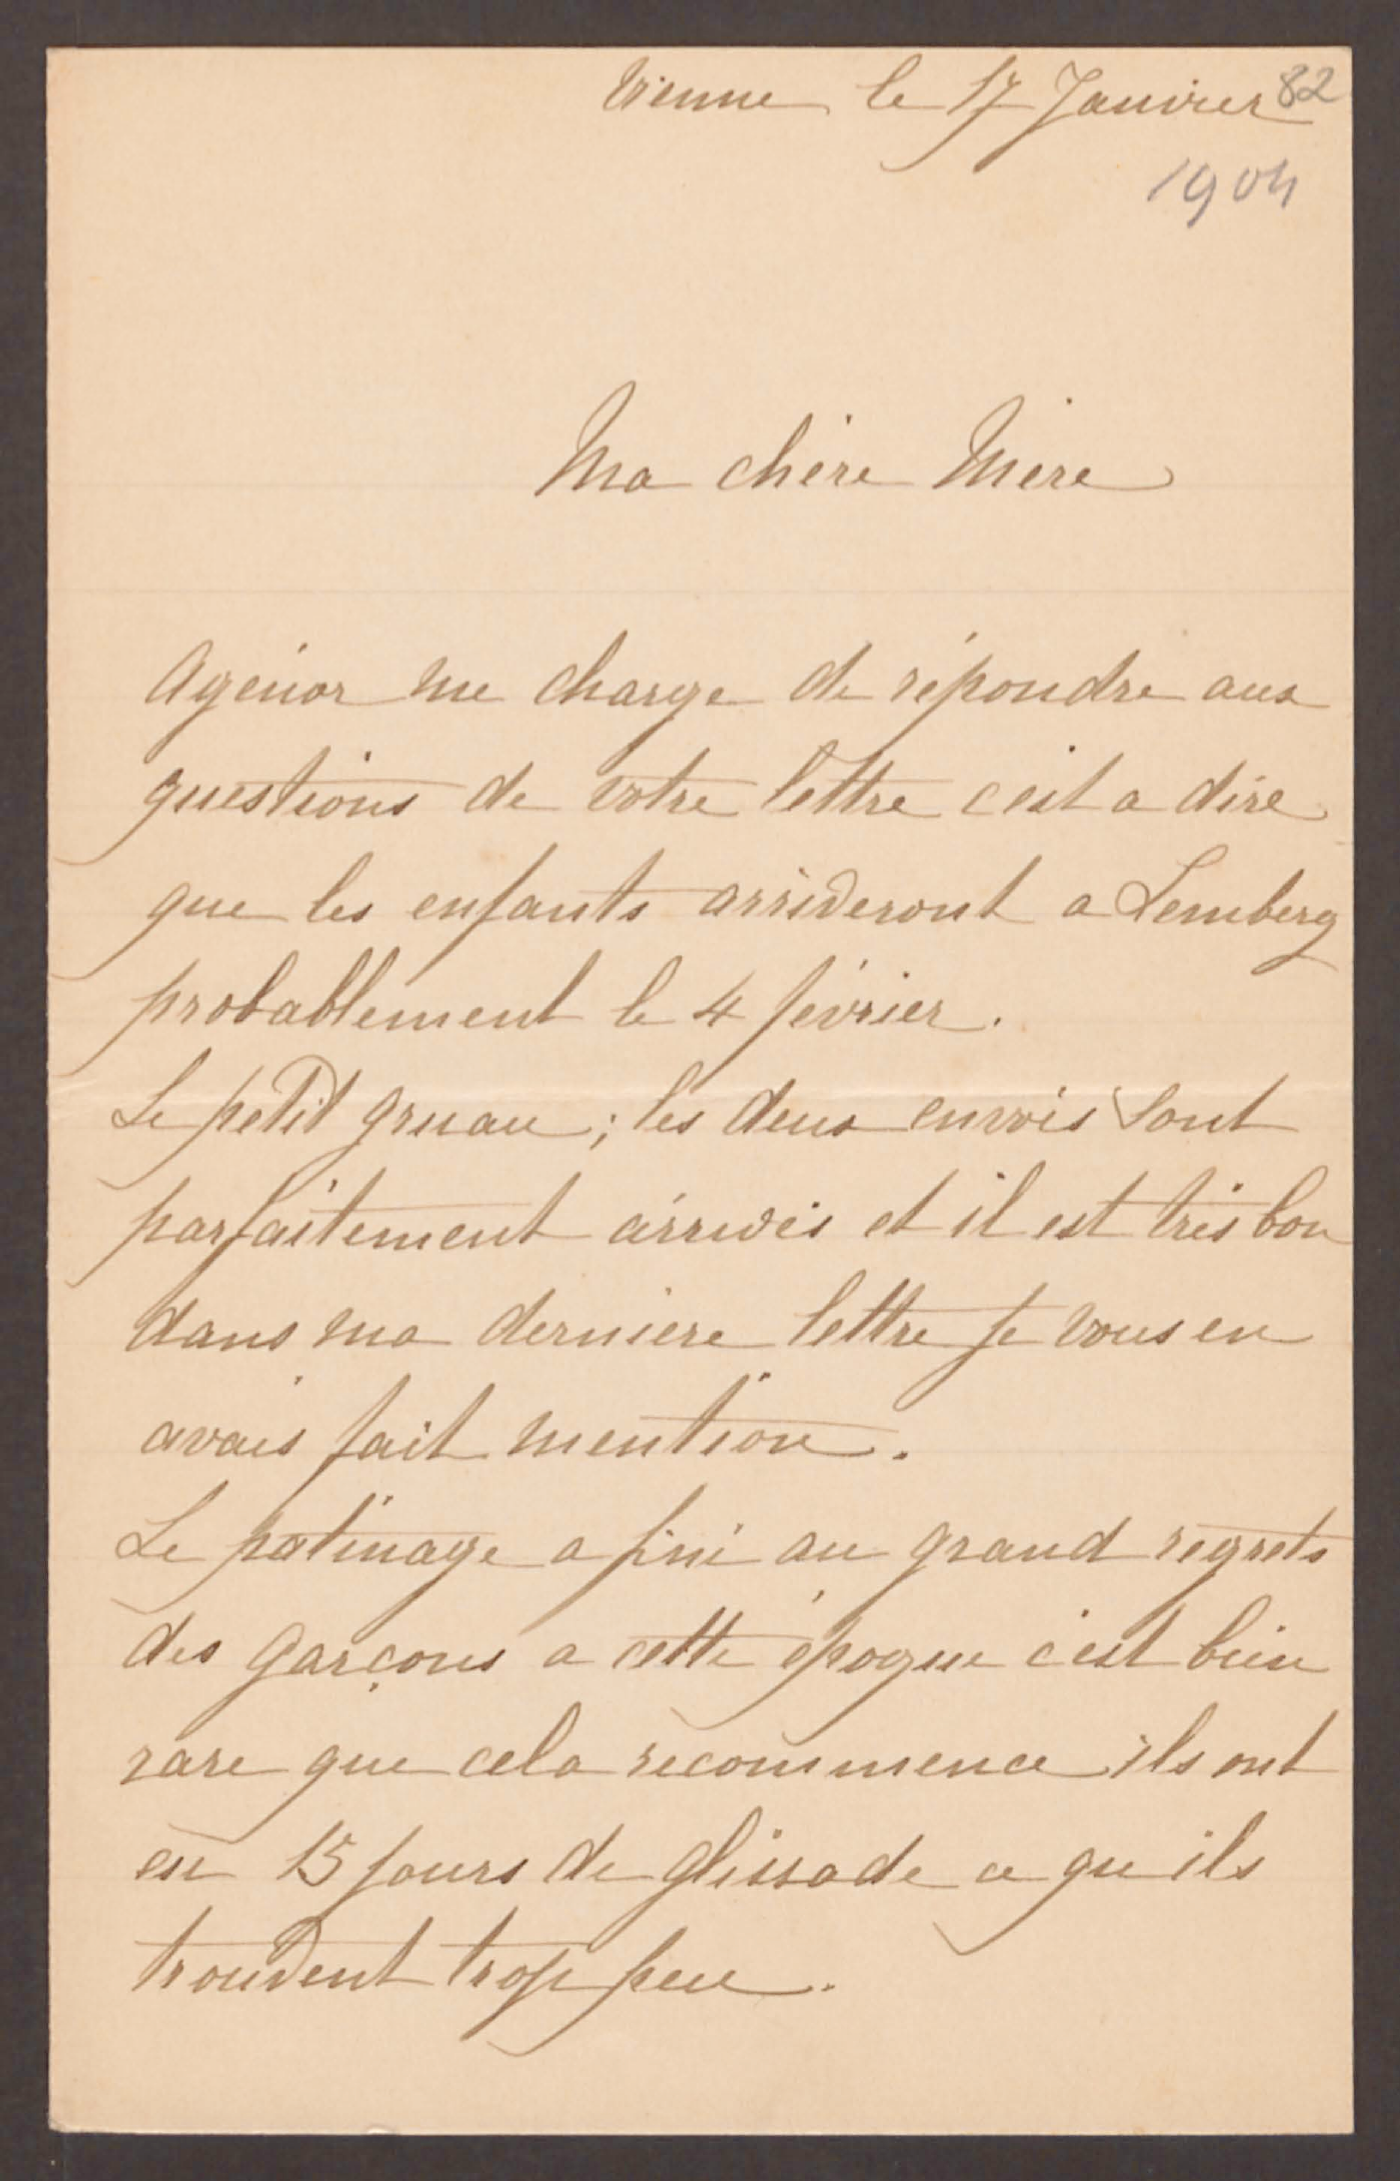 Vienne le 17 Janvier 82
1904
Ma chère Mère
Agénor me charge de répondre aux
questions de votre lettre c'est a dire
que les enfants arriveront a Lemberg
probablement le 4 février.
Le petit gruau ; les deux envois sont
parfaitement arrivés et il est très bon
dans ma derniere lettre je vous en
avais fait mention.
Le patinage a fini au grand regrets
des garçons a cette époque c'est bien
rare que cela recommence ils ont
eu 15 jours de glissade ce qu ils
trouvent trop peu.